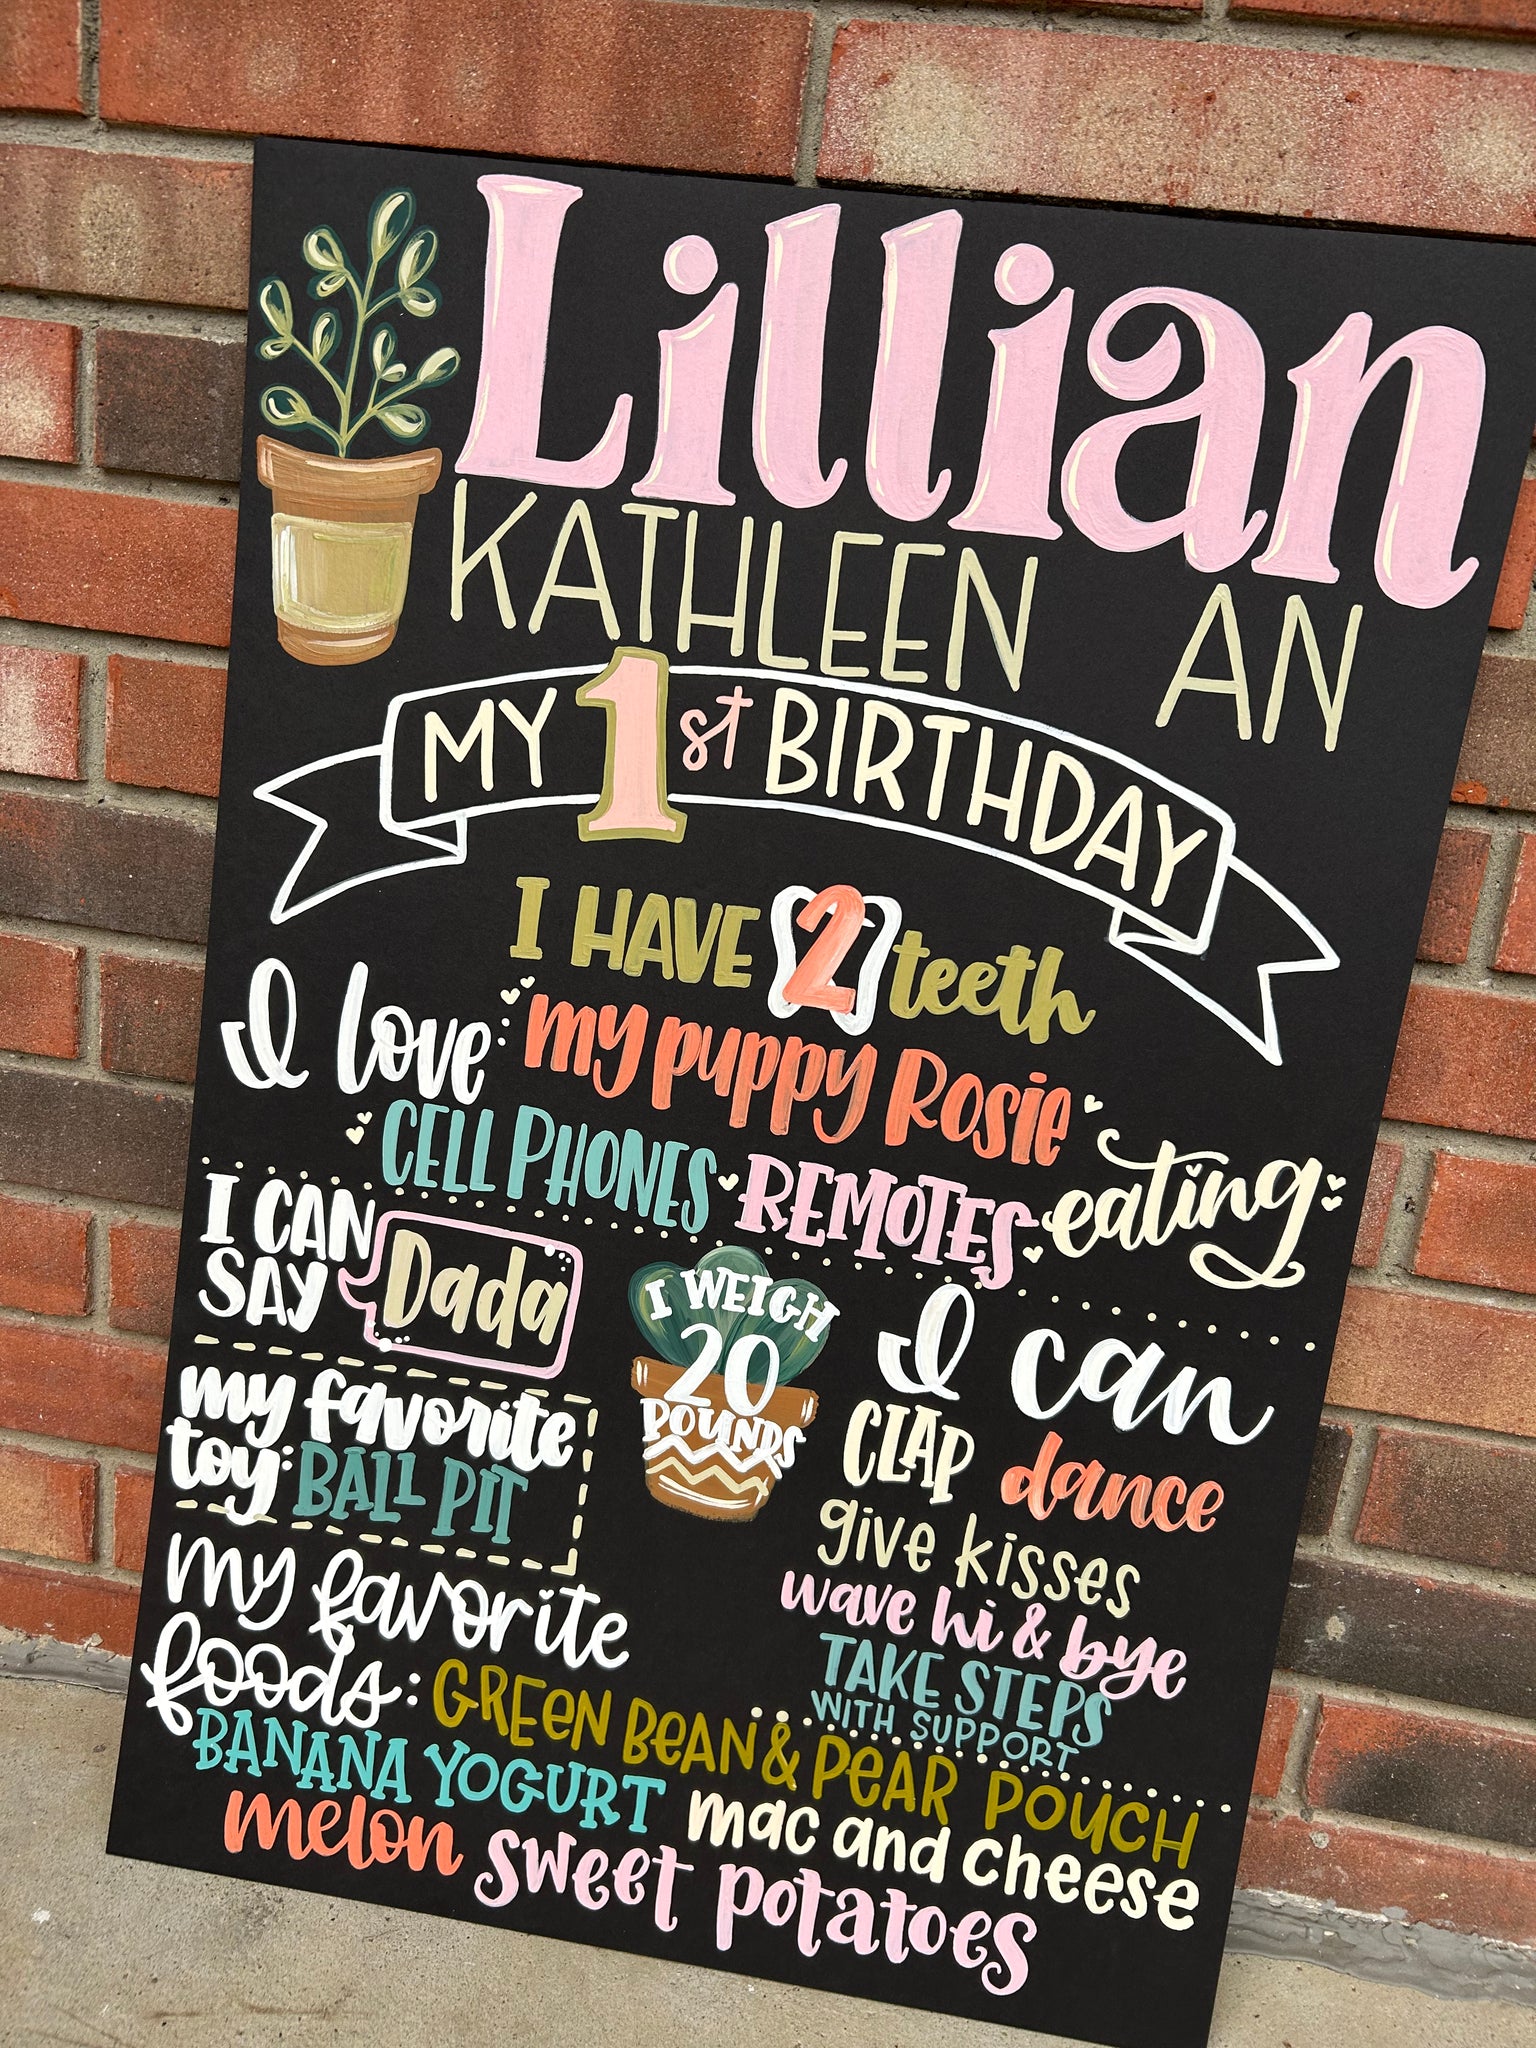 Lillian
KATHLEEN AN
MY 1st BIRTHDAY
I HAVE 2 teeth
I love: my puppy Rosie
CELL PHONES REMOTES eating
I CAN
SAY Dada
I WEIGH
20
POUNDS
my favorite
toy: BALL PIT
I can
CLAP dance
give kisses
wave hi & bye
TAKE STEPS
WITH SUPPORT
my favorite
foods: GREEN BEAN & PEAR POUCH
BANANA YOGURT mac and cheese
melon sweet potatoes